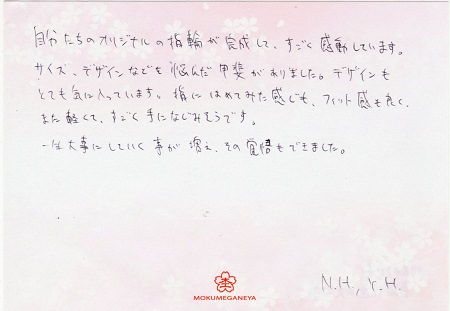 自分たちのオリジナルの指輪が完成して、すごく感動しています。
サイズ、デザインなどを悩んだ甲斐がありました。デザインも
とても気に入っています。指にはめてみた感じも、フィット感も良く、
また軽くて、すごく手になじみそうです。
一生大事にしていく事が増え、その覚悟もできました。
N.H., Y.H.
MOKUMEGANEYA